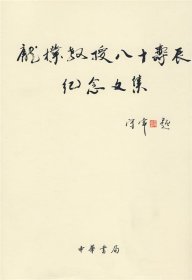 龐樸教授八十壽辰
紀念文集
中華書局